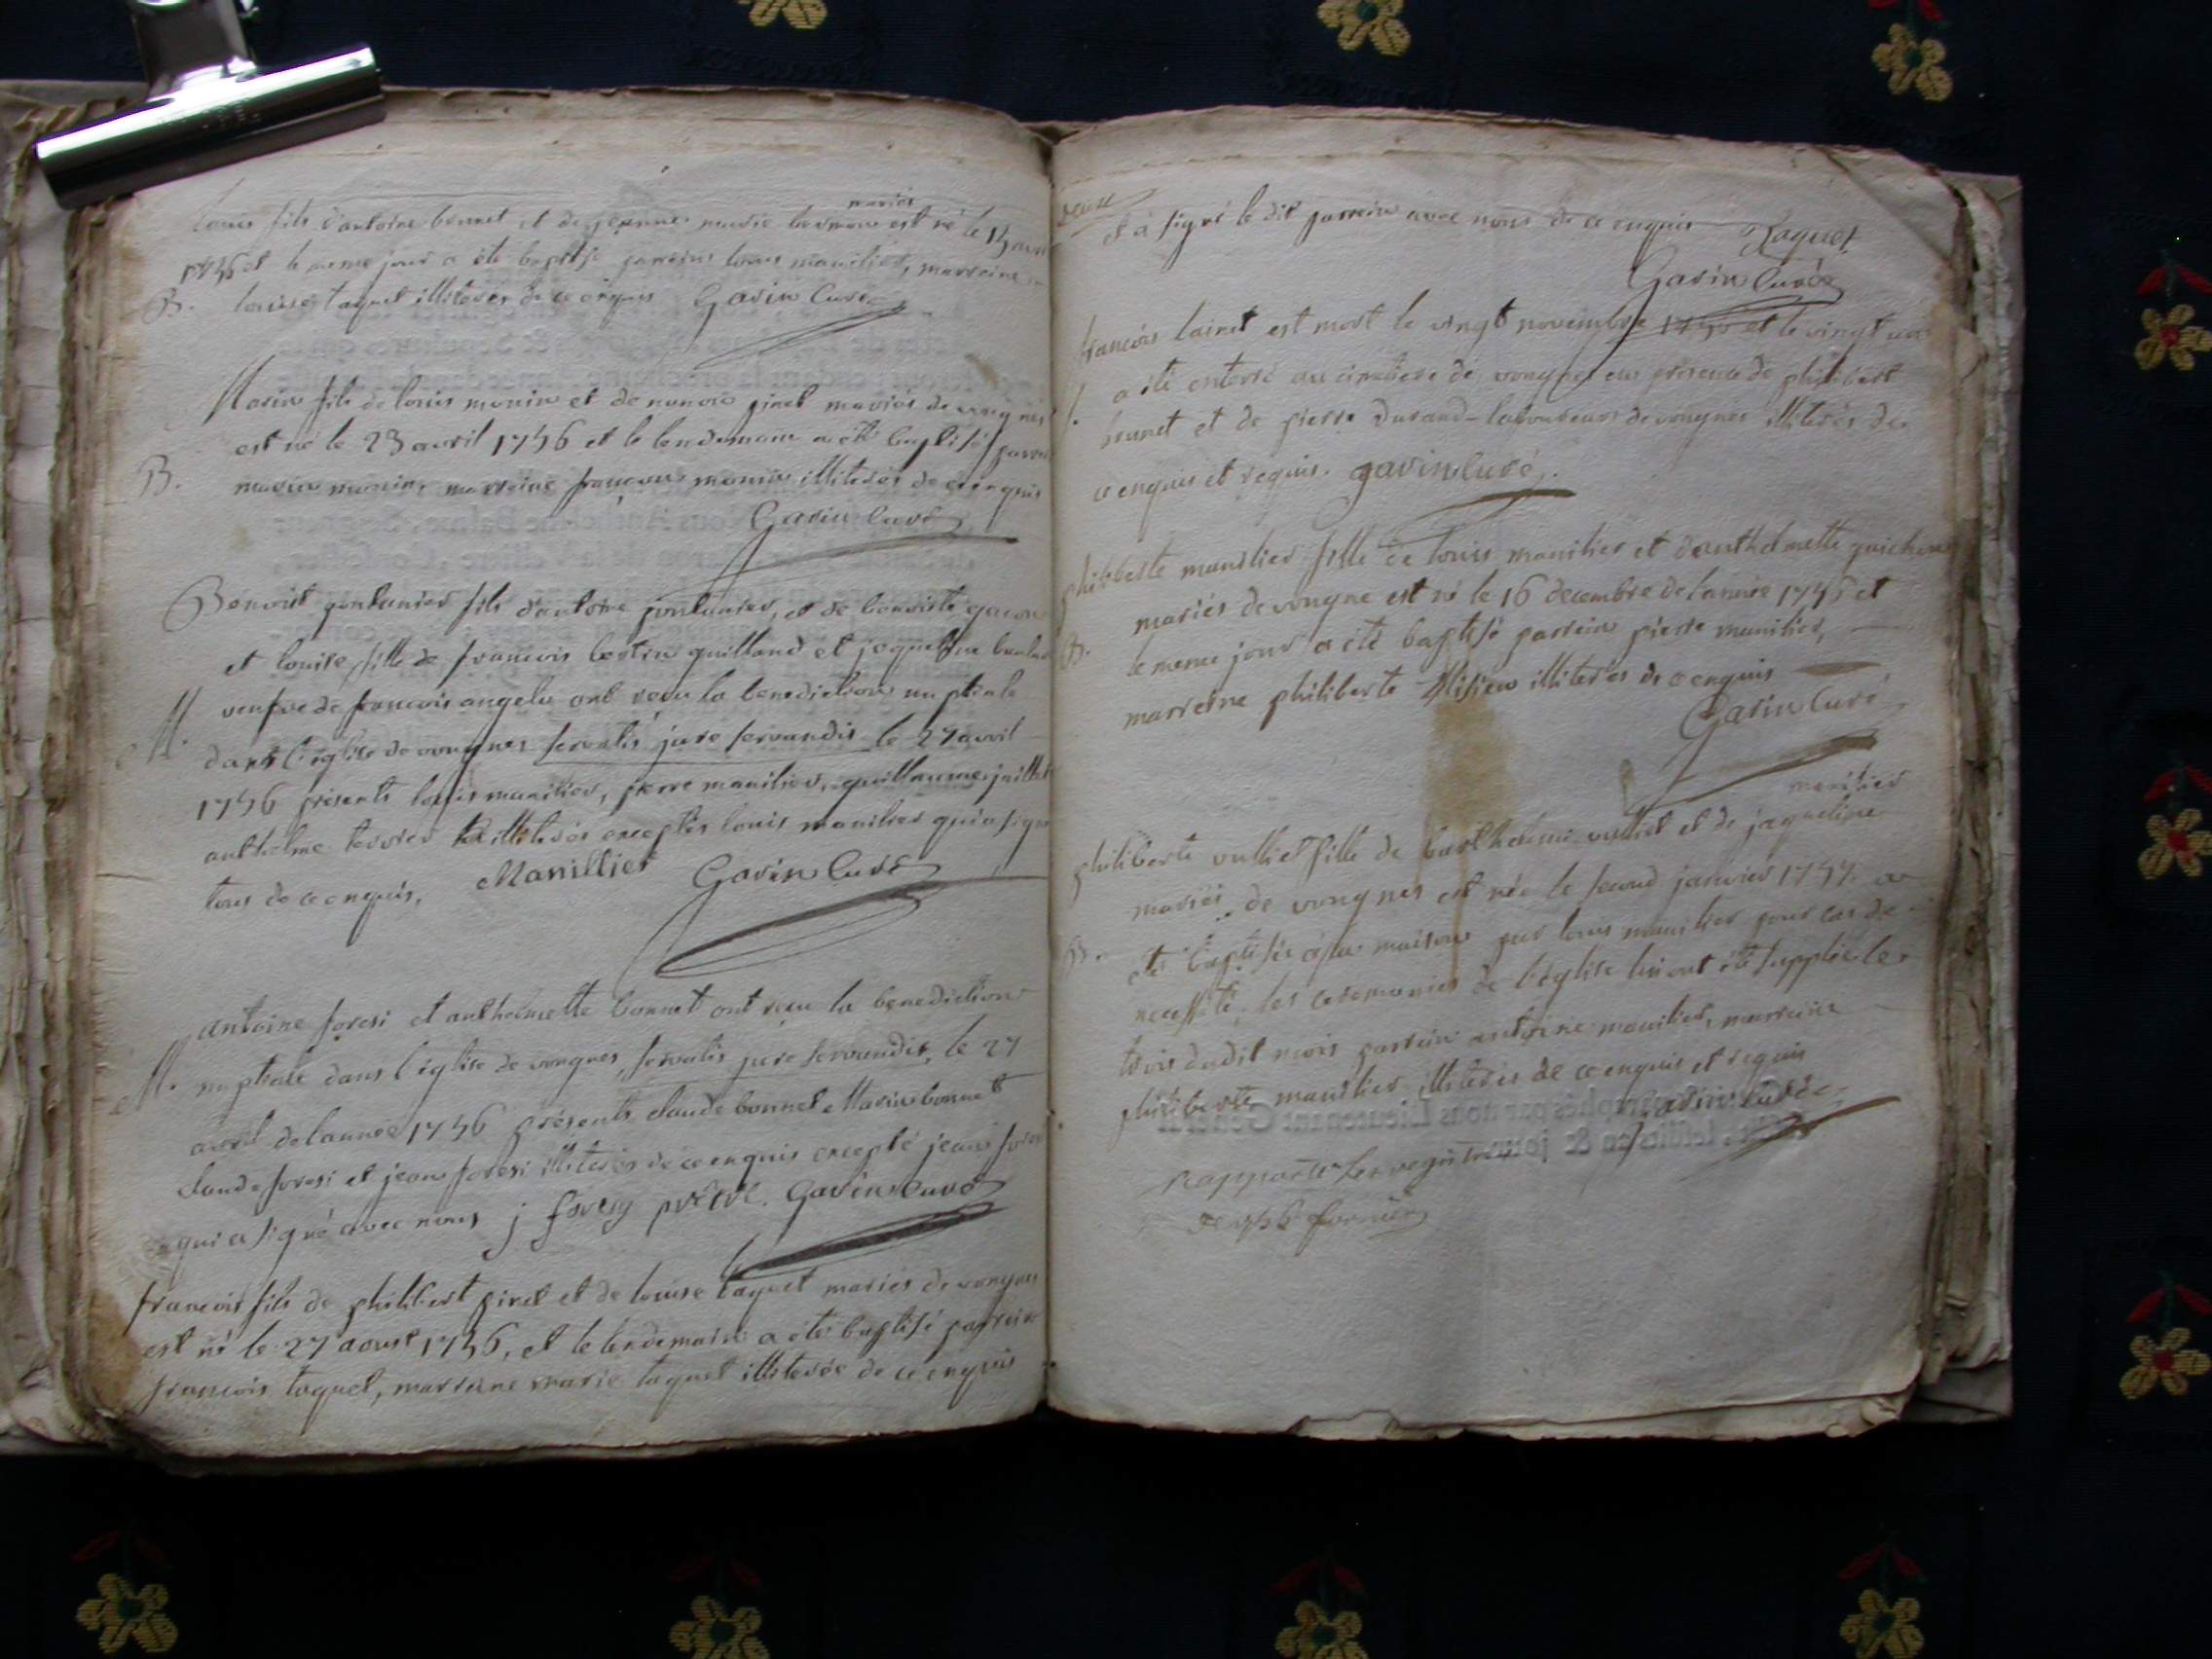 mariés
louis fils d'antoine bonnet et de jeanne marie est né le 15 avril
1756 et le meme jour a été baptisé parrein louis manilier, marreine
B. louise taquet illiterés de ce enquis Garin Curé
Marin fils de louis monin et de piret mariés de vongnes
est né le 23 avril 1756 et le lendemain a été baptisé parrein
B. marin monin, marreine françoise monin illiterés de ce enquis
Garin Curé
Benoist pontanier fils d'antoine pontanier, et de benoiste
et louise fille de francois bertin guilland et jaqueline
veufve de francois angelu ont recu la benediction nuptiale
M. dans l'eglise de vongnes servatis jure servandis le 27 avril
1756 présents louis manilier, pierre manilier, guillaume
anthelme terrier illiterés exceptés louis manilier qui a signé
tous de ce enquis, Manillier Garin Curé
antoine foresi et anthelmette bonnet ont recu la benediction
M. nuptiale dans l'église de vongnes, servatis jure servandis, le 27
avril de l'année 1756 présents claude bonnet Marin bonnet
claude foresi et jean foresi illiterés de ce enquis excepté jean foresi
qui a signé avec nous j foresy prêtre. Garin Curé
francois fils de philibert piret et de louise taquet mariés de vongnes
est né le 27 aoust 1756, et le lendemain a été baptisé parrein
francois taquet, marreine marie taquet illiterée de ce enquis
deux
et à signé le dit parrein avec nous de ce enquis Taquet
Garin Curé
francois lairet est mort le vingt novembre 1756 et le vingt un
a été enterré au cimetiere de vongnes en presence de philibert
brunet et de pierre durand laboureurs de vongnes illiterés de
ce enquis et requis. garin Curé
philiberte manilier fille de louis manilier et d'anthelmette guichon
mariés de vongne est né le 16 decembre de l'année 1756 et
B. le meme jour a été baptisé parrein pierre manilier,
marreine philiberte illiterés de ce enquis
Garin Curé
manilier
philiberte vulliet fille de barthelemi vulliet et de jaqueline
mariés de vongnes est née le second janvier 1757 a
B. été baptisée a la maison par louis manilier pour cas de
necessité, les ceremonies de l'église lui ont été supplée le
trois dudit mois parrein antoine manilier, marreine
philiberte manilier illiterés de ce enquis et requis
Garin Curé
Rapporté les registres
de 1756